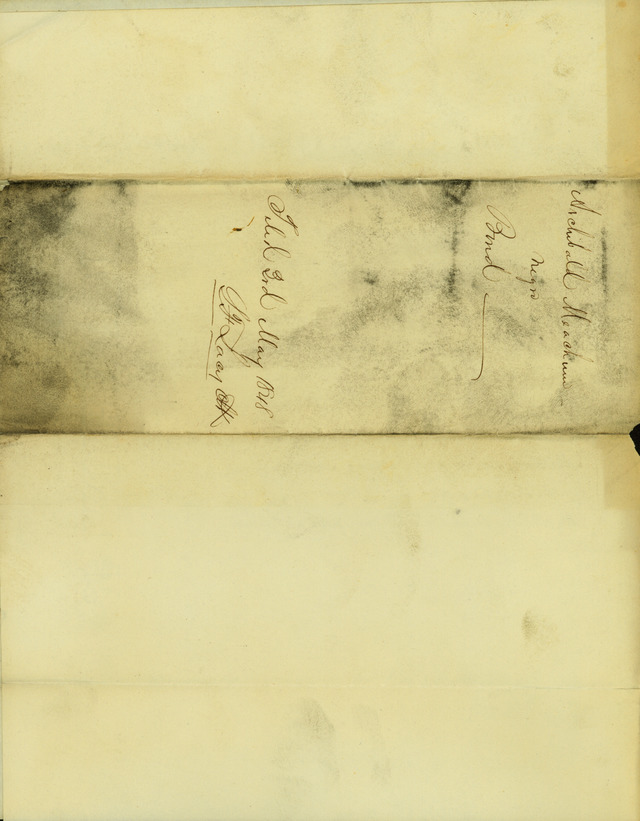 Archibald Meachum
negro
Bond
Filed 3rd May 1848
Lacy Clk